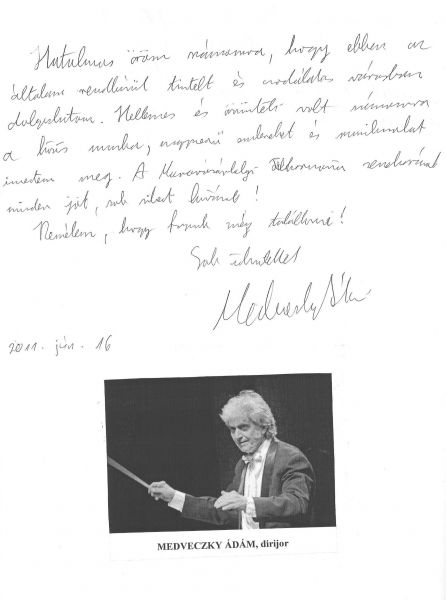 Hatalmas öröm számomra, hogy ebben az
általam rendkívül tisztelt és csodálatos városban
dolgozhatom. Kellemes és örömteli volt számomra
a közös munka, nagyszerű embereket és muzsikusokat
ismertem meg. A Marosvásárhelyi Filharmónia zenekarának
minden jót, sok sikert kívánok!
Remélem, hogy fogunk még találkozni!
Sok üdvözlettel
Medveczky Ádám
2011. jún. 16
MEDVECZKY ÁDÁM, dirijor